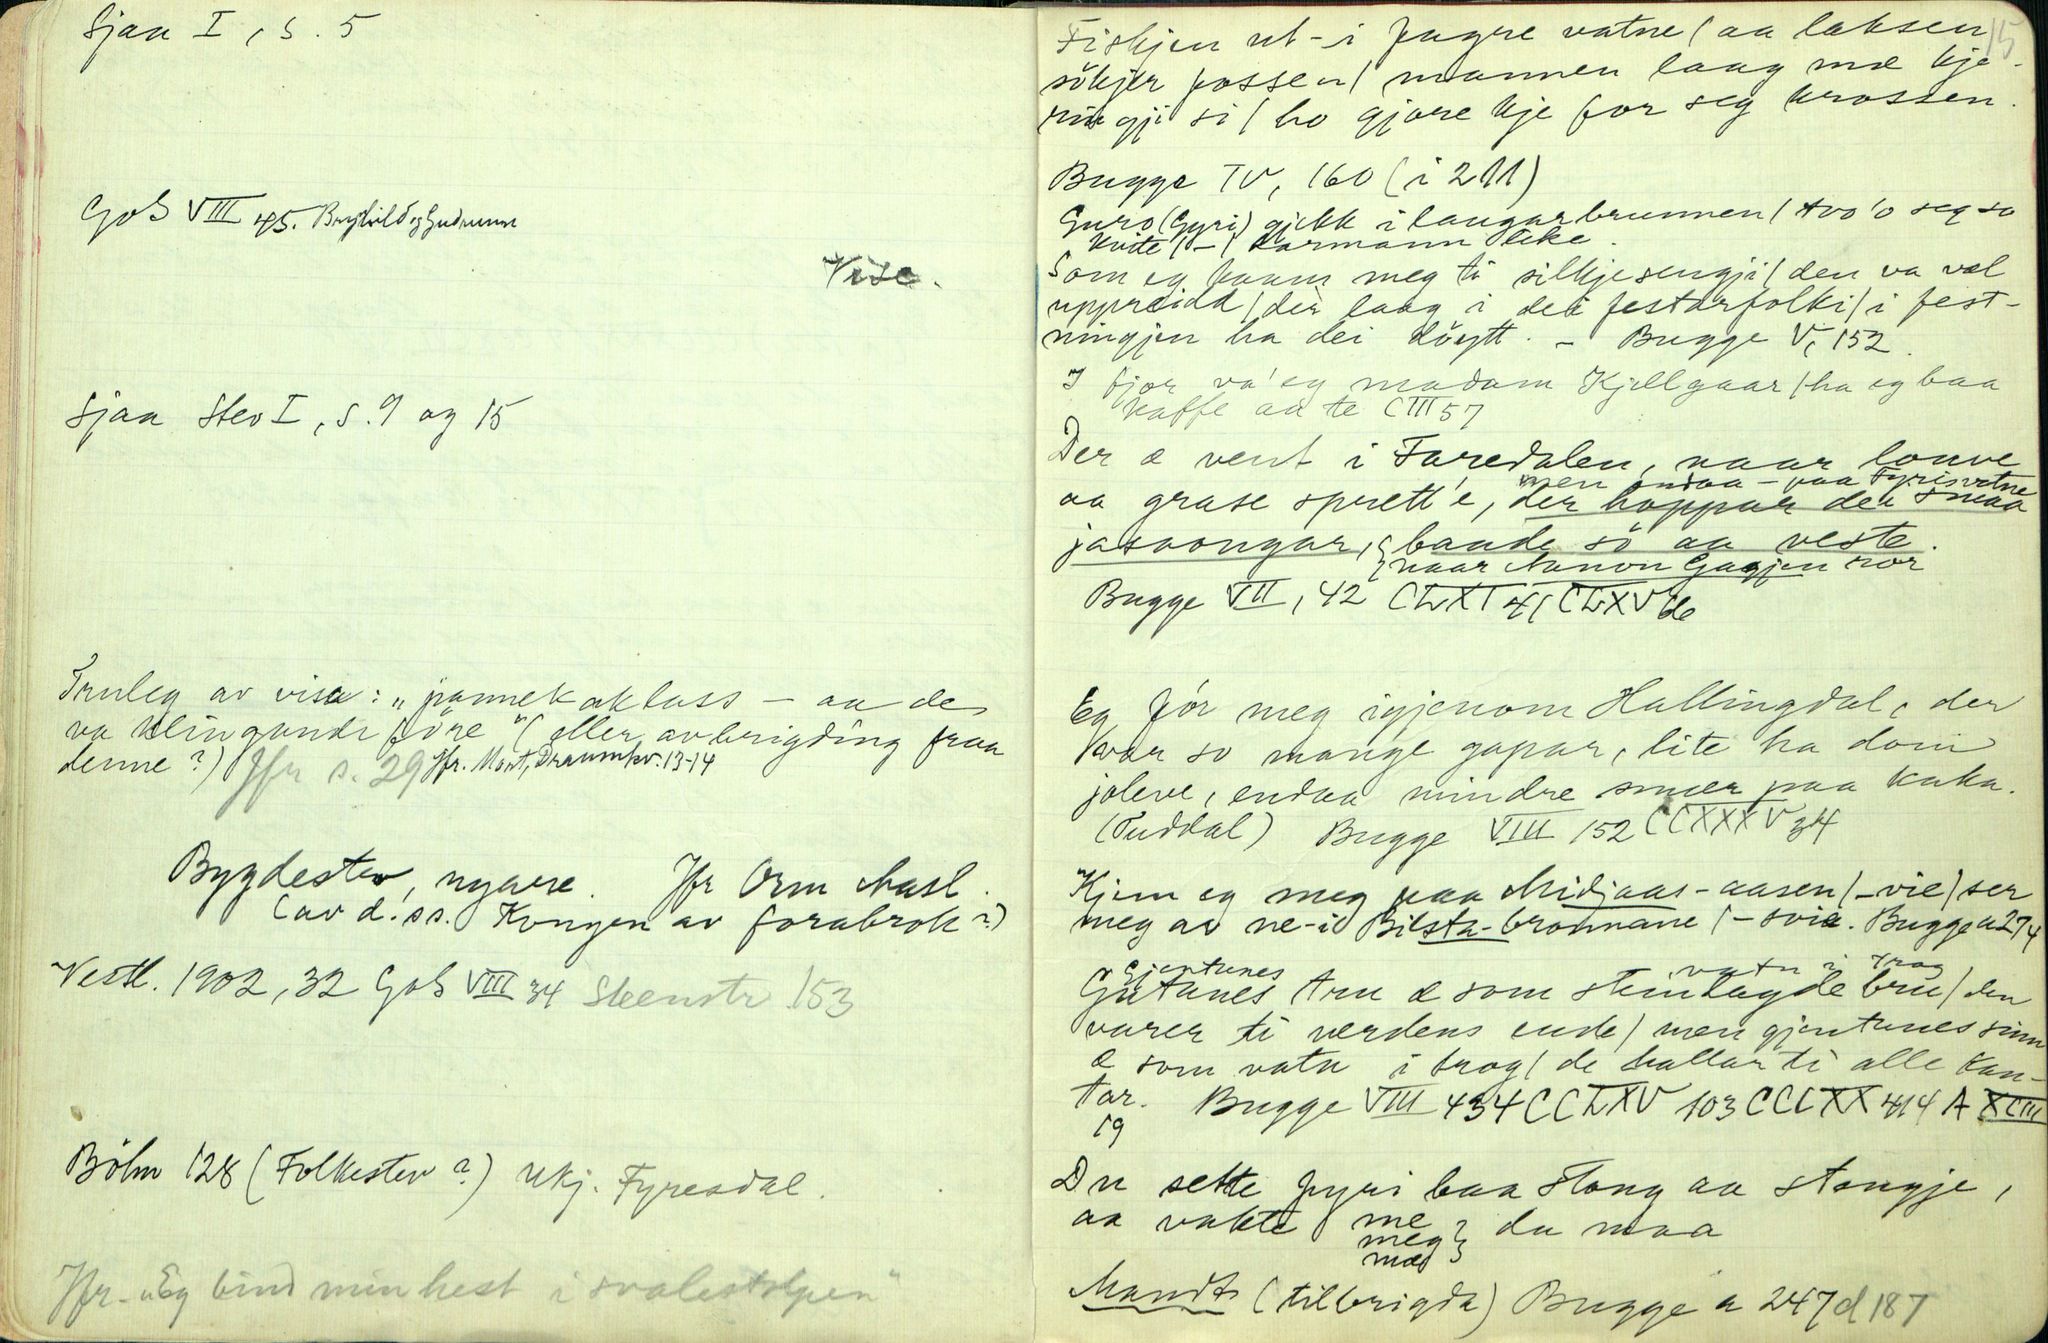 Sjaa I, s. 5
GoS VIII 45. Brynhild og Gudrunn
Vise.
Sjaa Stev I, s. 9 og 15
Truleg av visa: „pannekaklass – aa de
va klingande före" (eller avbrigding fraa
denne?) Jfr s. 29 Jfr. Mort, Draumkv. 13-14
Bygdestev, nyare. Jfr Orm
(av d. ss. Kongen av forabrok?)
Vestl. 1902, 32 GoS VIII 34 Steenstr 153
Böhm 128 (Folkestev?) ukj. Fyresdal.
Jfr. „Eg bind min hest i svalestolpen"
15
Fiskjen ut-i fagre vatne / aa laksen
sökjer fossen / mannen laag mæ kje-
ringji si / ho gjore kje for seg krossen.
Bugge IV, 160 (i 211)
Guro (Gyri) gjekk i laugarbrunnen / tvo 'o seg so
kvite / – / karmann like.
Som eg kaam meg ti silkjesengji / den va væl
uppreidd / der laag i dei festarfolki / i fest-
ningjen ha dei döytt. – Bugge V, 152.
I fjor va' eg madam Kjellgaar / ha eg baa
kaffe aa te CIII 57
Der æ vent i Faredalen, naar lauve
men endaa – paa Fyrisvatne
aa grase sprett'e, der hoppar dei smaa
jasaongar, baade sö aa veste.
naar Nanon Gagjen snor
Bugge VII, 42 CLXI 41 CLXV de
Eg fór meg igjenom Hallingdal, der
var so mange gapar, lite ha dom
joleve, endaa mindre smær paa kaka.
(Tuddal) Bugge VIII 152 CCXXXV 34
Kjem eg meg paa Midjaas-aasen / – vie / ser
meg av ne-i Bilsta-bronnane / – svie. Bugge a 274
Gjentunes vatn i trog
Gutanes tru æ som steinlagde bru / den
varer ti verdens ende / men gjentunes sinn
æ som vatn i trog / de hallar ti alle kan-
tar. Bugge VIII 434 CCLXV 103 CCCXX 414 A XCIII
19
Du sette fyri baa stong aa stengje,
aa vakte me du maa
meg
mæ
Mandt (tilbrigda) Bugge a 247 d 187